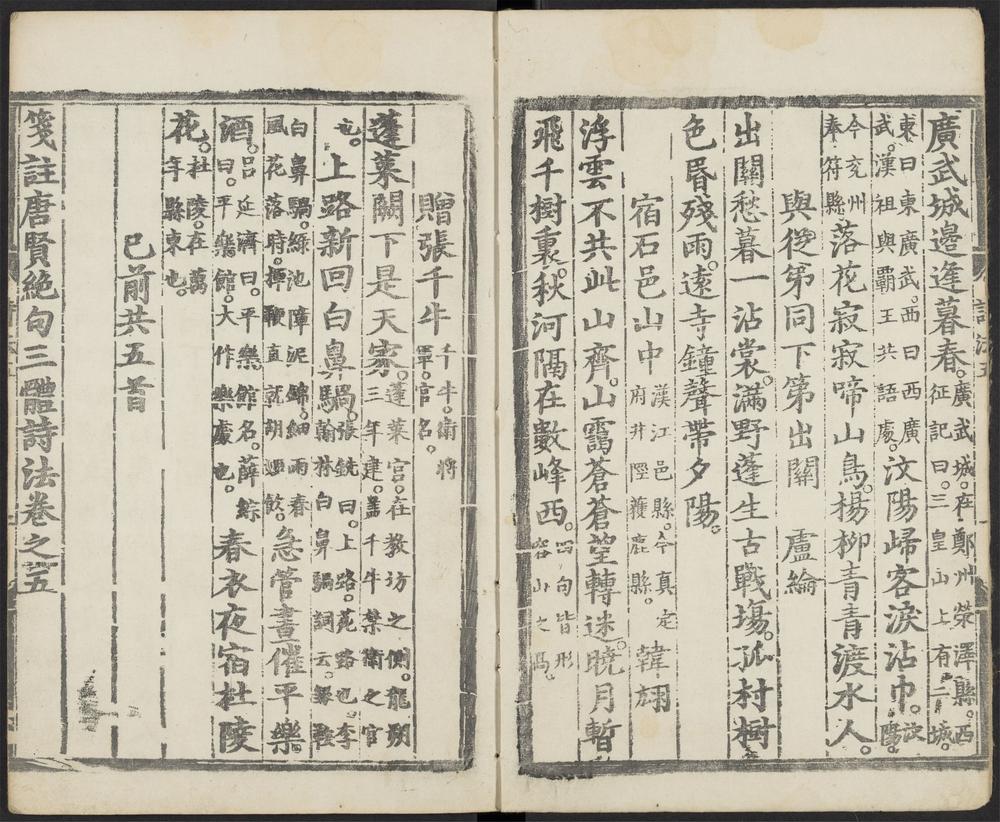 廣武城邊逢暮春。廣武城。在鄭州滎澤縣。西征記曰。三皇山上有二城。
東曰東廣武。西曰西廣武。漢祖與覇王共語處。汶陽歸客淚沾巾。汶陽。
今兖州奉符縣。落花寂寂啼山鳥。楊柳青青渡水人。
與從弟同下第出關 盧綸
出關愁暮一沾裳。滿野蓬生古戰場。孤村樹
色昏殘雨。遠寺鐘聲帶夕陽。
宿石邑山中 漢江邑縣。今真定府井陘獲鹿縣。 韓翃
浮雲不共此山齊。山靄蒼蒼望轉迷。曉月暫
飛千樹裏。秋河隔在數峰西。四句皆形容山之高。
贈張千牛 千牛。衛將軍。官名。
蓬萊闕下是天家。蓬萊宮。在教坊之側。龍朔三年建。盖千牛禁衛之官
也。上路新回白鼻騧。張銑曰。上路。苑路也。李翰林白鼻騧詞云。銀鞍
白鼻騧。綠池障泥錦。細雨春風花落時。揮鞭直就胡姬飲。急管晝催平樂
酒。呂延濟曰。平樂館名。薛綜曰。平樂館。大作樂處也。春衣夜宿杜陵
花。杜陵。在萬年縣東也。
已前共五首
箋註唐賢絕句三體詩法卷之五